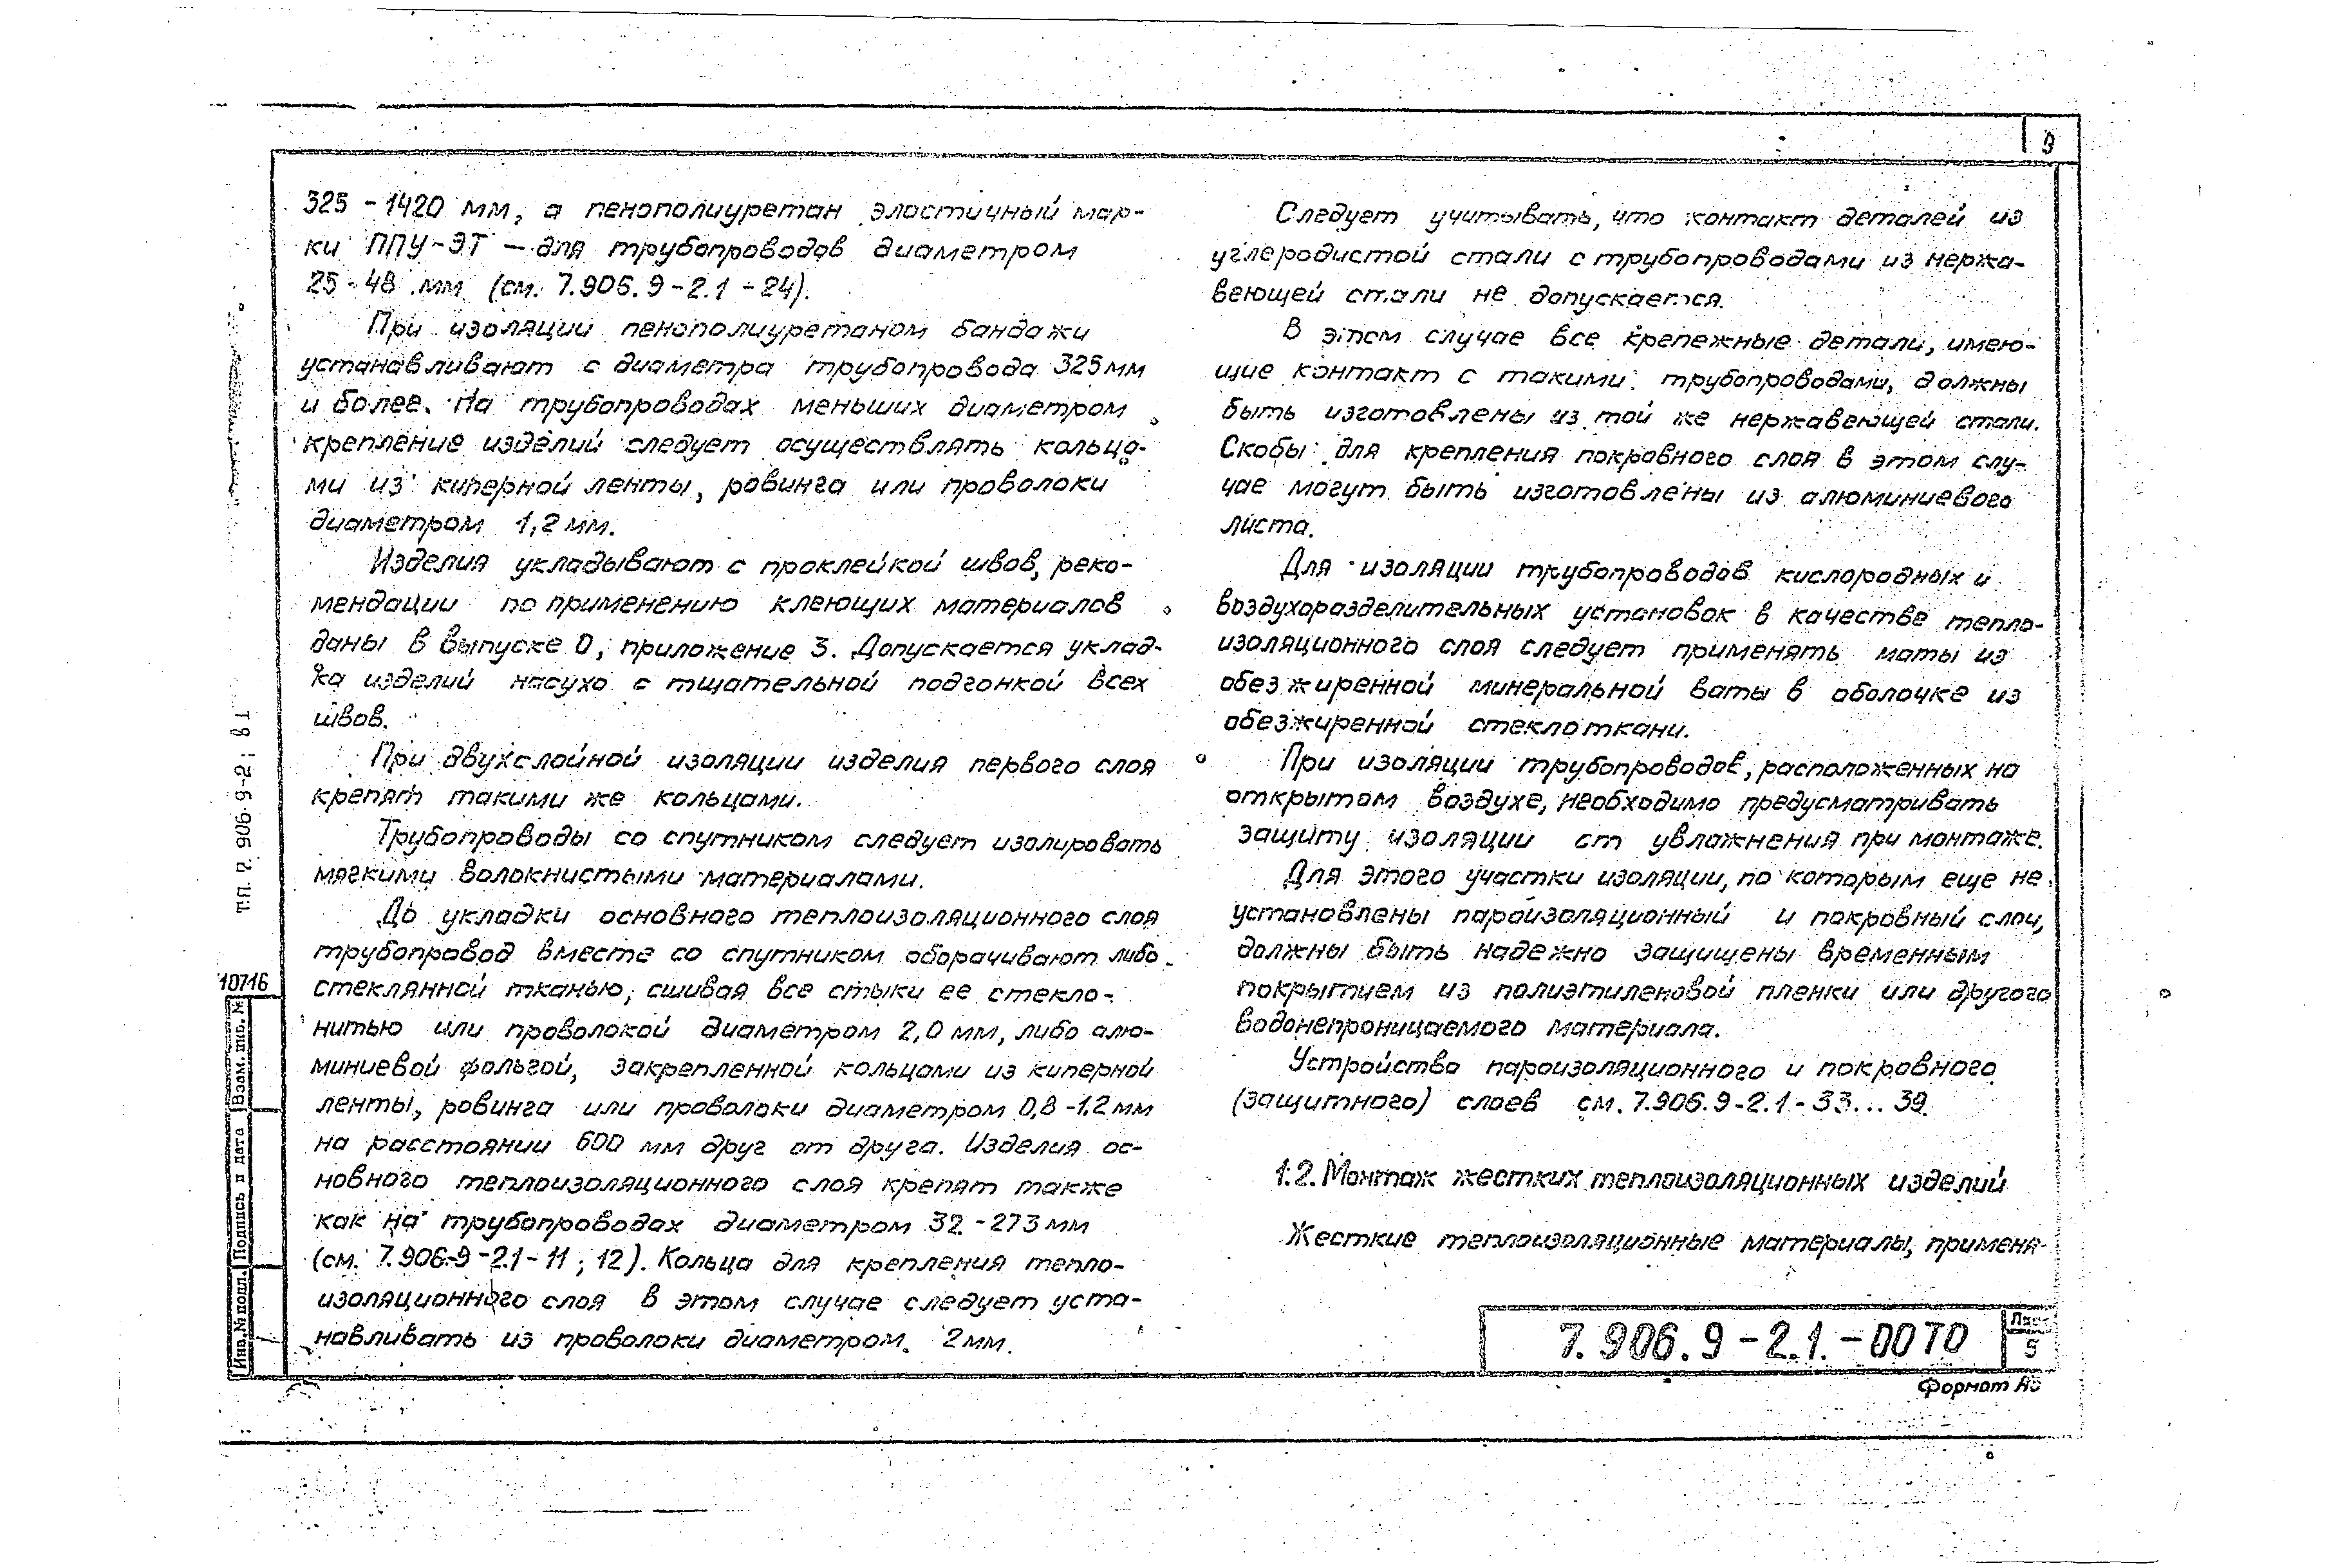 9
325 - 1420 мм, а пенополиуретан эластичный мар-
ки ППУ-ЭТ — для трубопроводов диаметром
25 - 48 мм (см. 7.906.9-2.1-24).
При изоляции пенополиуретаном бандажи
устанавливают с диаметра трубопровода 325 мм
и более. На трубопроводах меньших диаметром
крепление изделий следует осуществлять кольца-
ми из киперной ленты, ровинга или проволоки
диаметром 1,2 мм.
Изделия укладывают с проклейкой швов, реко-
мендации по применению клеющих материалов
даны в выпуске 0, приложение 3. Допускается уклад-
ка изделий насухо с тщательной подгонкой всех
швов.
При двухслойной изоляции изделия первого слоя
крепят такими же кольцами.
Трубопроводы со спутником следует изолировать
мягкими волокнистыми материалами.
До укладки основного теплоизоляционного слоя
трубопровод вместе со спутником оборачивают либо
стеклянной тканью, сшивая все стыки ее стекло-
нитью или проволокой диаметром 2,0 мм, либо алю-
миниевой фольгой, закрепленной кольцами из киперной
ленты, ровинга или проволоки диаметром 0,8-1,2 мм
на расстоянии 600 мм друг от друга. Изделия ос-
новного теплоизоляционного слоя крепят также
как на трубопроводах диаметром 32 - 273 мм
(см. 7.906.9-2.1-11; 12). Кольца для крепления тепло-
изоляционного слоя в этом случае следует уста-
навливать из проволоки диаметром 2 мм.
Следует учитывать, что контакт деталей из
углеродистой стали с трубопроводами из нержа-
веющей стали не допускается.
В этом случае все крепежные детали, имею-
щие контакт с такими трубопроводами, должны
быть изготовлены из той же нержавеющей стали.
Скобы для крепления покровного слоя в этом слу-
чае могут быть изготовлены из алюминиевого
листа.
Для изоляции трубопроводов кислородных и
воздухоразделительных установок в качестве тепло-
изоляционного слоя следует применять маты из
обезжиренной минеральной ваты в оболочке из
обезжиренной стеклоткани.
При изоляции трубопроводов, расположенных на
открытом воздухе, необходимо предусматривать
защиту изоляции от увлажнения при монтаже.
Для этого участки изоляции, по которым еще не
установлены пароизоляционный и покровный слои,
должны быть надежно защищены временным
покрытием из полиэтиленовой пленки или другого
водонепроницаемого материала.
Устройство пароизоляционного и покровного
(защитного) слоев см. 7.906.9-2.1-33...39.
1.2. Монтаж жестких теплоизоляционных изделий
Жесткие теплоизоляционные материалы, применя-
7.906.9-2.1.-00ТО
Лист
5
Формат А3
т.п. 7.906.9-2; в1
10716
Взам. инв. №
Подпись и дата
Инв.№ подл.